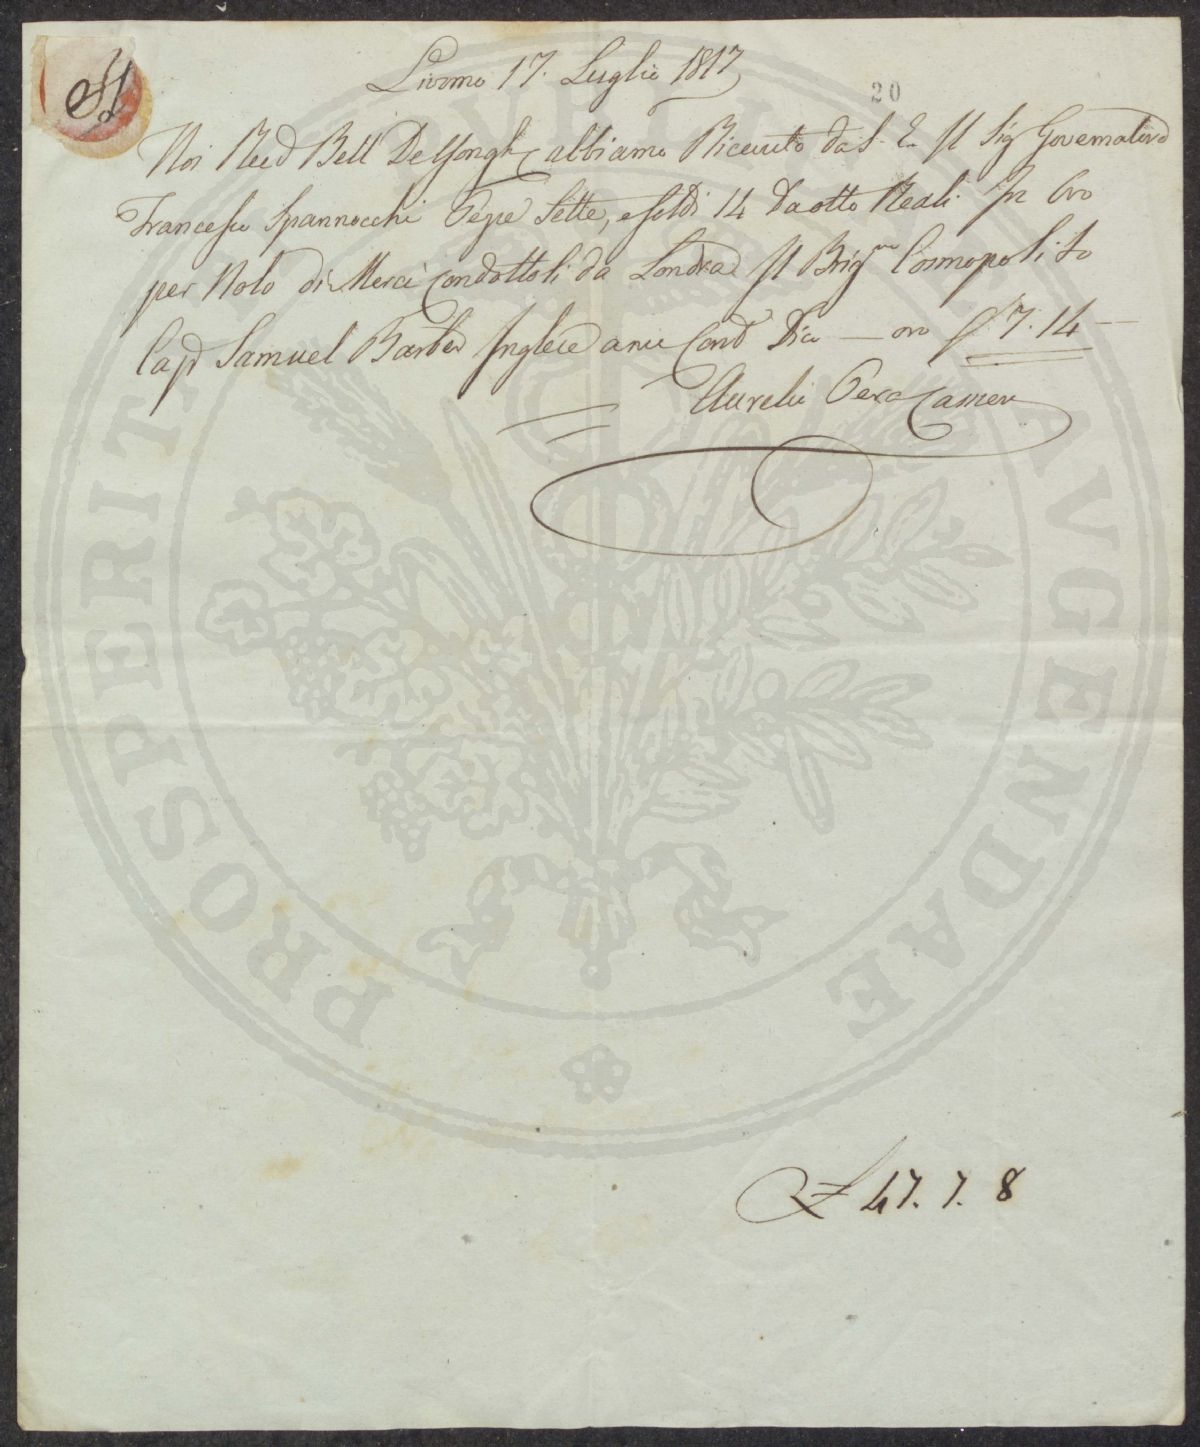 Livorno 17. Luglio 1817
20
Noi Reed Bell DeYongh & C abbiamo Ricevuto da S. E. Il Sig Governatore
Francesco Spannocchi Pezze Sette, e soldi 14 da otto Reali In Oro
per Nolo di Merci Condottoli da Londra Il Brig.no Cosmopolito
Cap Samuel Barber Inglese Dico — oro P 7. 14 —
Aurelio
£ 47. 7. 8
PROSPERITATI PUBLICAE AUGENDAE